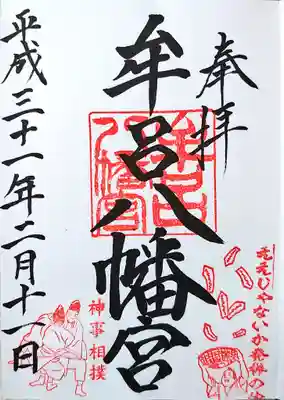 奉拝
牟呂八幡宮
平成三十一年二月十一日
神事相撲
ええじゃないか発祥の地
牟呂八幡宮